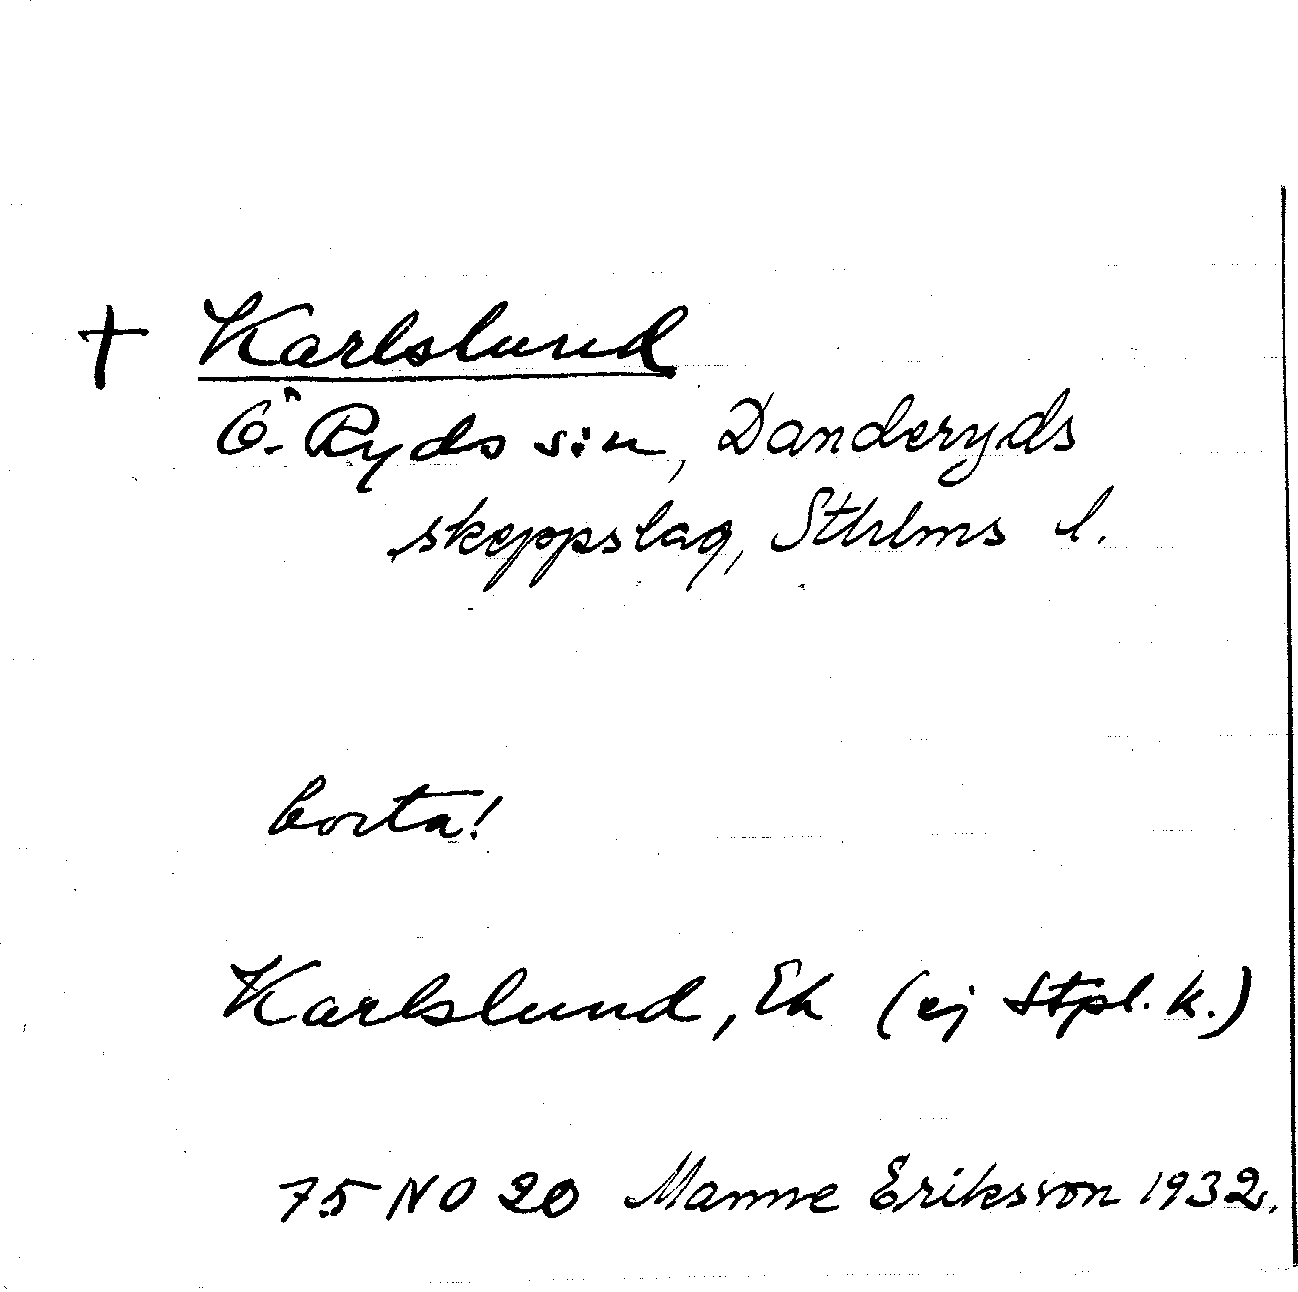 † Karlslund
Ö. Ryds s:n, Danderyds
skeppslag, Sthlms l.
borta!
Karlslund, Ek (ej Stpl. k.)
75 NO 20 Manne Eriksson 1932.